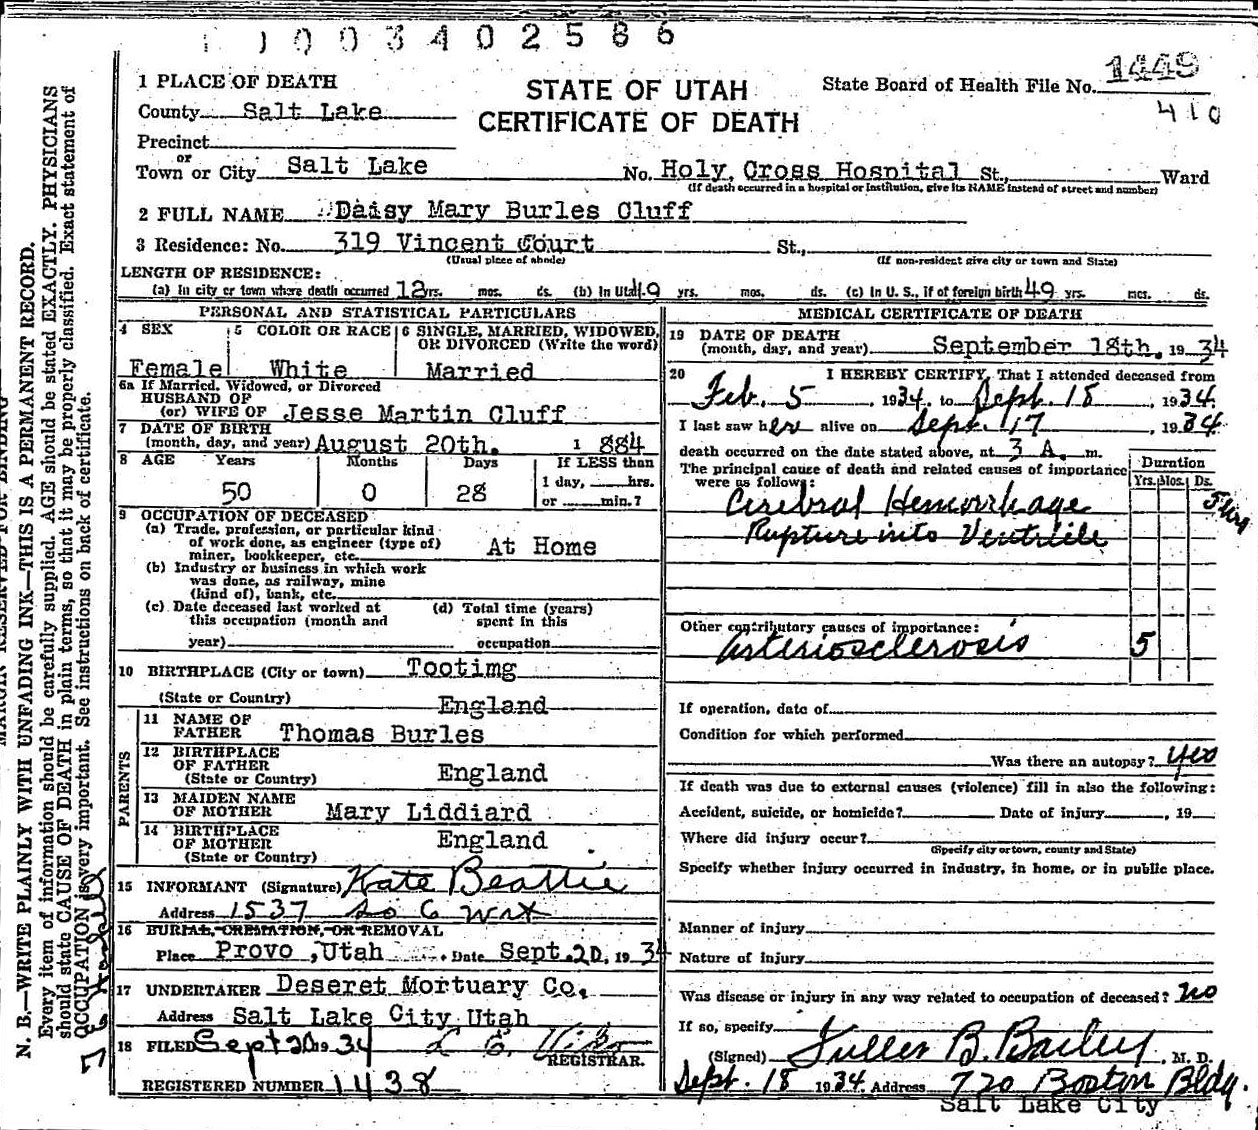 1003402586
1 PLACE OF DEATH
STATE OF UTAH
CERTIFICATE OF DEATH
State Board of Health File No. 1449
410
County Salt Lake
Precinct
or
Town or City Salt Lake No. Holy Cross Hospital St., Ward
(If death occurred in a hospital or institution, give its NAME instead of street and number)
2 FULL NAME Daisy Mary Burles Cluff
3 Residence: No. 319 Vincent Court St.,
(Usual place of abode) (If non-resident give city or town and State)
LENGTH OF RESIDENCE:
(a) In city or town where death occurred 12 yrs. mos. ds. (b) In Utah 49 yrs. mos. ds. (c) In U. S., if of foreign birth 49 yrs. mos. ds.
PERSONAL AND STATISTICAL PARTICULARS
4 SEX 5 COLOR OR RACE 6 SINGLE, MARRIED, WIDOWED,
OR DIVORCED (Write the word)
Female White Married
6a If Married, Widowed, or Divorced
HUSBAND OF
(or) WIFE OF Jesse Martin Cluff
7 DATE OF BIRTH
(month, day, and year) August 20th. 1884
8 AGE Years Months Days If LESS than
1 day, hrs.
50 0 28 or min.?
9 OCCUPATION OF DECEASED
(a) Trade, profession, or particular kind
of work done, as engineer (type of)
miner, bookkeeper, etc. At Home
(b) Industry or business in which work
was done, as railway, mine
(kind of), bank, etc.
(c) Date deceased last worked at (d) Total time (years)
this occupation (month and spent in this
year) occupation
10 BIRTHPLACE (City or town) Tootimg
(State or Country) England
PARENTS
11 NAME OF
FATHER Thomas Burles
12 BIRTHPLACE
OF FATHER
(State or Country) England
13 MAIDEN NAME
OF MOTHER Mary Liddiard
14 BIRTHPLACE
OF MOTHER
(State or Country) England
15 INFORMANT (Signature) Kate Beattie
Address 1537 So 6 West
16 BURIAL, CREMATION, OR REMOVAL
Place Provo, Utah Date Sept. 20, 1934
17 UNDERTAKER Deseret Mortuary Co.
Address Salt Lake City Utah
18 FILED Sept 20 1934
REGISTRAR.
REGISTERED NUMBER 1438
MEDICAL CERTIFICATE OF DEATH
19 DATE OF DEATH
(month, day, and year) September 18th. 1934
20 I HEREBY CERTIFY, That I attended deceased from
Feb. 5, 1934, to Sept. 18, 1934.
I last saw her alive on Sept. 17, 1934
death occurred on the date stated above, at 3 A. m.
The principal cause of death and related causes of importance
were as follows:
Duration
Yrs. Mos. Ds.
Cerebral Hemorrhage
Rupture into Ventricle
Other contributory causes of importance:
Arteriosclerosis 5
If operation, date of
Condition for which performed
Was there an autopsy? yes
If death was due to external causes (violence) fill in also the following:
Accident, suicide, or homicide? Date of injury , 19
Where did injury occur?
(Specify city or town, county and State)
Specify whether injury occurred in industry, in home, or in public place.
Manner of injury
Nature of injury
Was disease or injury in any way related to occupation of deceased? no
If so, specify
(Signed) Fuller B. Bailey, M. D.
Sept. 18 1934 Address 720 Boston Bldg.
Salt Lake City
N. B.—WRITE PLAINLY WITH UNFADING INK—THIS IS A PERMANENT RECORD.
Every item of information should be carefully supplied. AGE should be stated EXACTLY. PHYSICIANS
should state CAUSE OF DEATH in plain terms, so that it may be properly classified. Exact statement of
OCCUPATION is very important. See instructions on back of certificate.